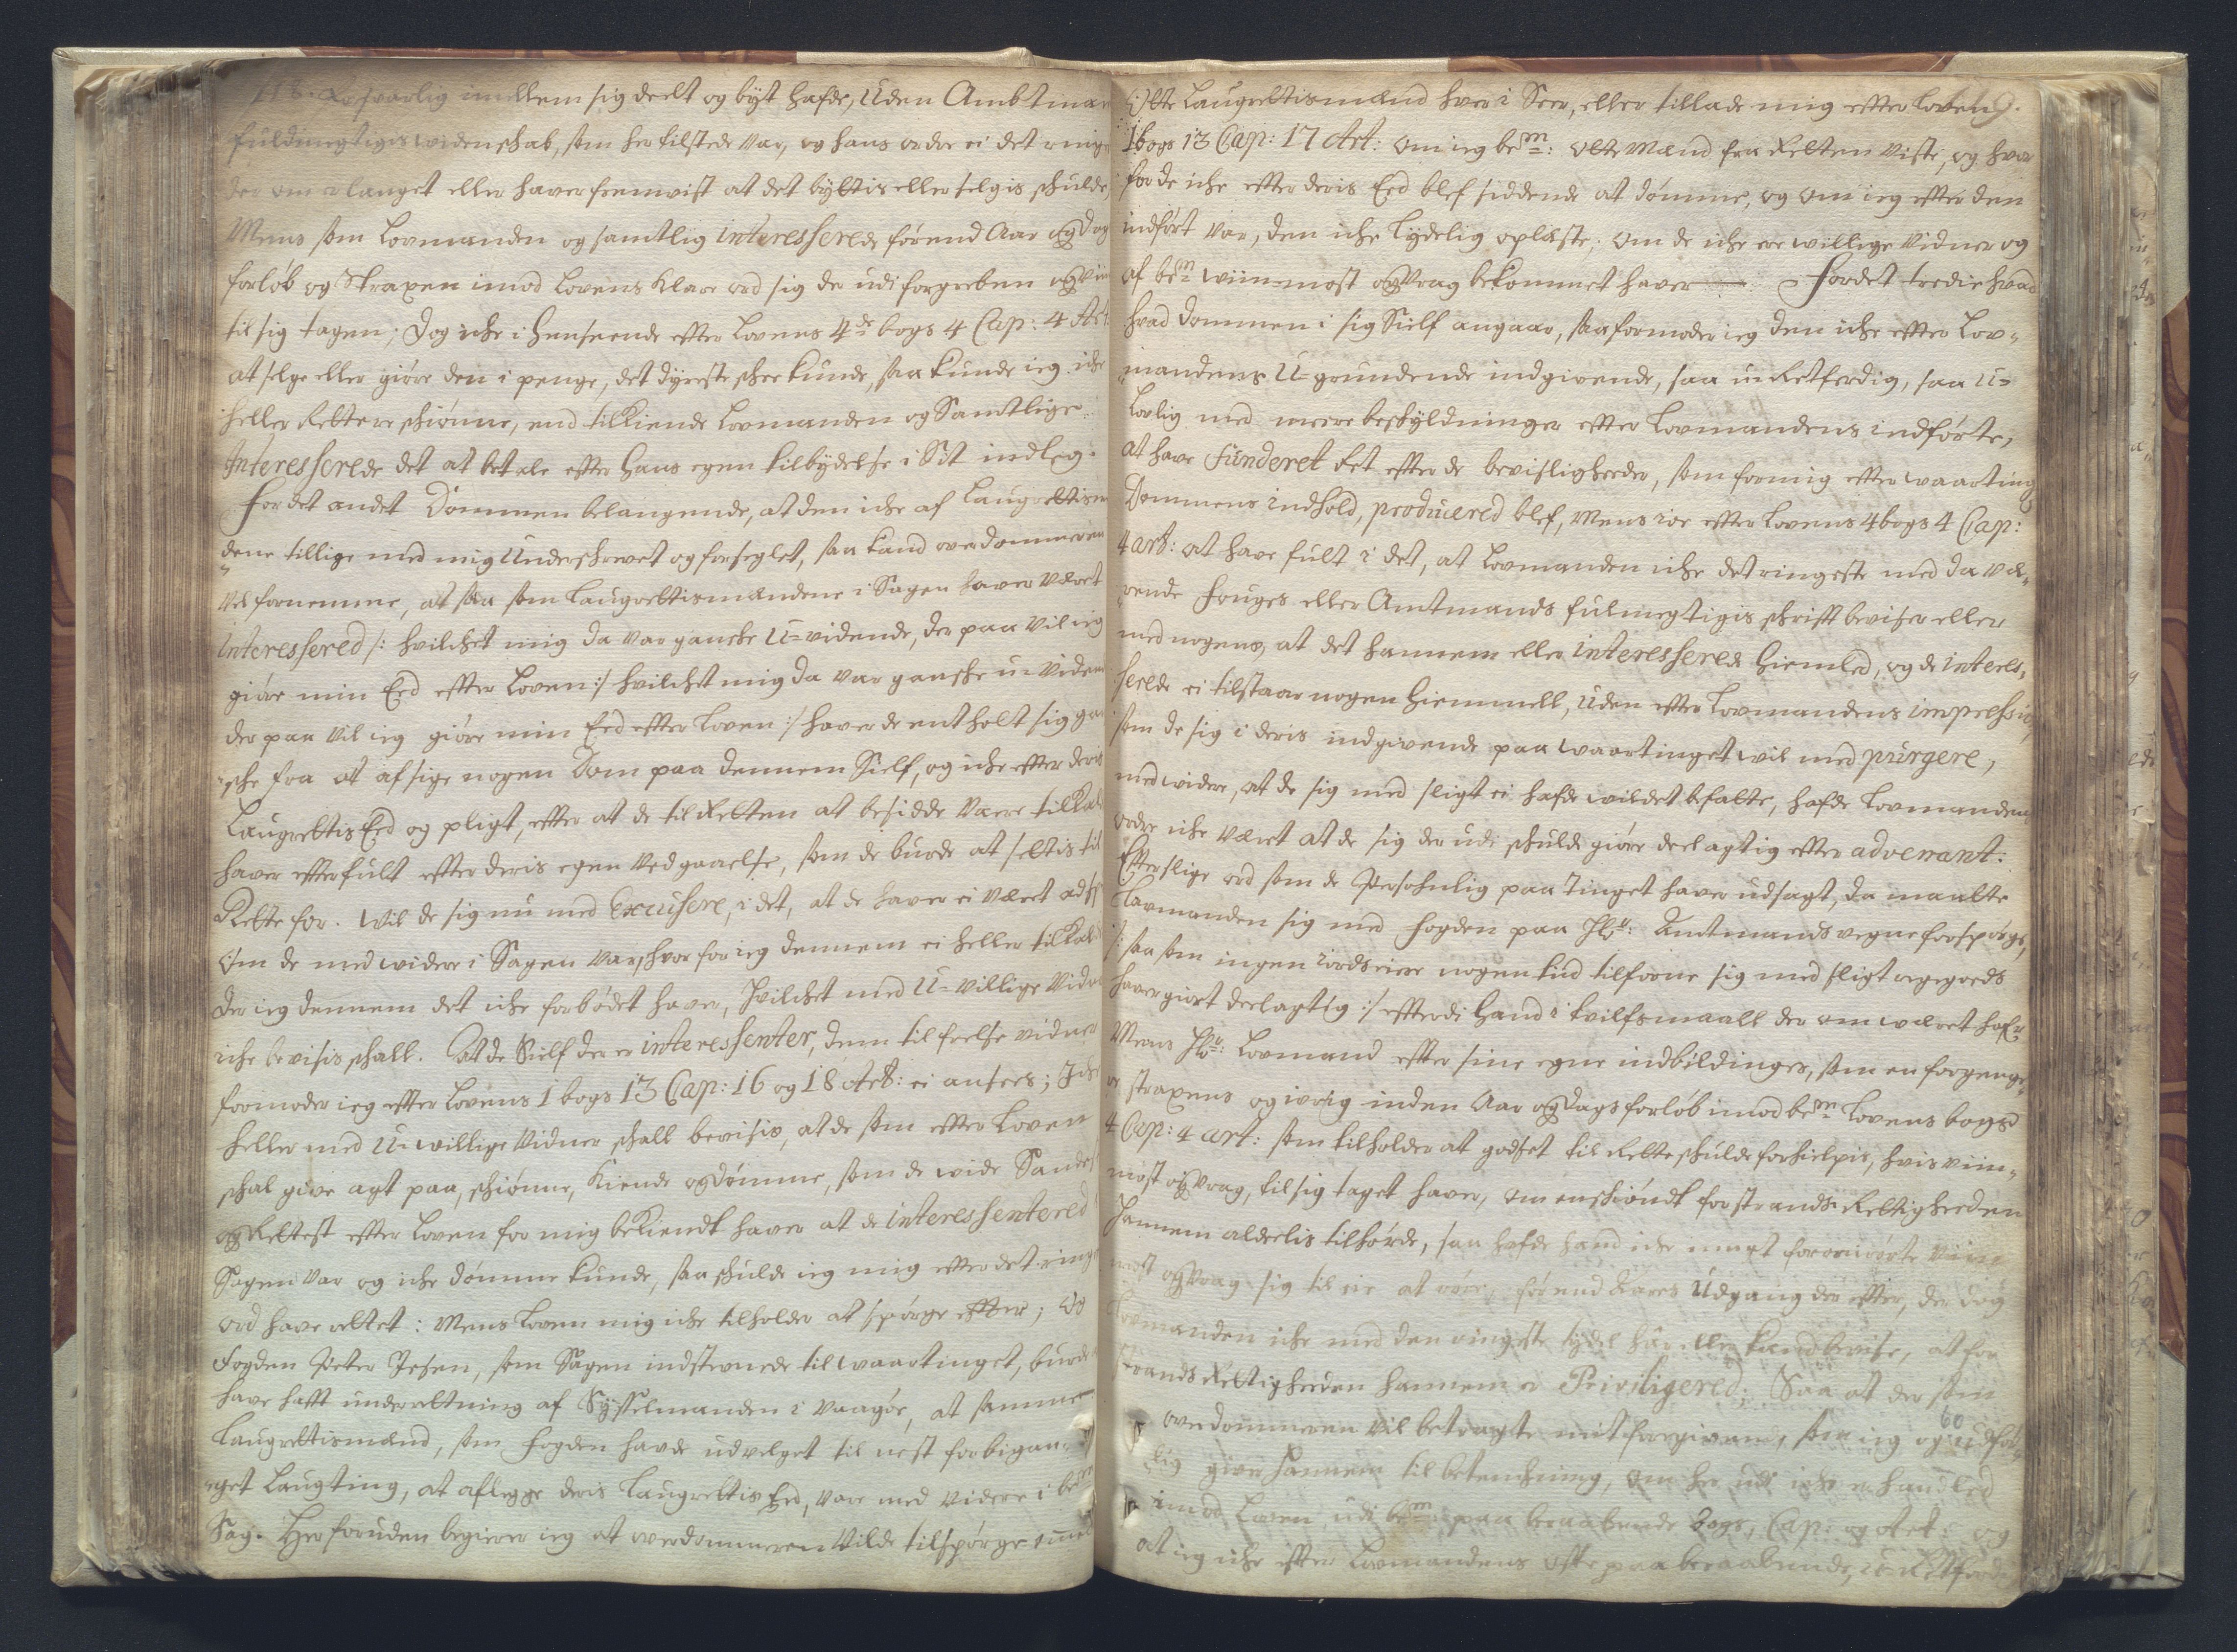 118. Reswarlig imellem sig deelt og byt hafde, Uden Ambtman
fuldmegtiges widenschab, som her tilstede var, og hans ordre ei det ringe
der om erlanget eller haver fremvist at det byttis eller selgis schulde,
Mens som Lovmanden og samtlig interesserede førend Aar og dag
forløb og straxen imod Lovens Klare ord sig der udi forgreben og vin
til sig tagen; Dog iche i henseende effter Lovens 4de bogs 4 Cap: 4 Art
at selge eller giøre den i penge, det dyreste schee kunde, saa kunde ieg iche
heller Rettere schiønne, end tilkiende Lovmanden og Samtlige
Interesserede det at betale effter hans egen tilbydelse i Sit indleg.
For det andet Dommen belangende, at den iche af Laugrettism
dene tillige med mig Underschrevet og forseglet, saa kand overdommeren
vel fornemme, at saa som Laugrettismændene i Sagen haver Været
interessered /: hvilchet mig da var ganske U-vidende, der paa vil ieg
giøre min Eed effter Loven :/ hvilchet mig da var ganske u-viden
der paa vil ieg giøre min Eed effter Loven :/ haver de entholt sig gan
sche fra at afsige nogen Dom paa dennem Sielf, og iche effter deris
Laugrettis Eed og pligt, effter at de til Retten at besidde Vare tilkal
haver effterfult effter deris egen Vedgaaelse, som de burde at settis til
Rette for. Wil de sig nu med Excusere, i det, at de haver ei været ads
om de med widere i Sagen var, hvor for ieg dennem ei heller tilkal
der ieg dennem det iche forbødet haver, hvilchet med U-villige Vidn
iche bevisis schall. At de Sielf der er interessenter, dem til frelse vidner
formoder ieg effter Lovens 1 bogs 13 Cap: 16 og 18 Art: ei ansees; Iche
heller med U-willige Vidner schall bevisis, at de som effter Loven
schal give agt paa, schiønne, Kiende og dømme, som de wide Sandes
og Rettest effter Loven for mig bekiendt haver at de interessentered
Sagen var og iche dømme kunde, saa schulde ieg mig effter det ringe
ord have rettet: Mens Loven mig iche tilholder at spørge effter; Og
Fogden Peter Jesen, som Sagen indstevnede til waartinget, burde
have hafft underretning af Sysselmanden i Vaagøe, at samme
Laugrettismænd, som fogden havde udvelget til nest forbigan-
get Laugting, at aflegge deris Laugrettis Eed, vare med Videre i bem
Sag. Her foruden begierer ieg at overdommeren Vilde tilspørge
Otte Laugrettismænd hver i Seer, eller tillade mig effter Loven 9.
1 bogs 13 Cap: 17 Art: om ieg bem: Otte Mænd fra Retten viste, og hvor
for de iche effter deris Eed blef siddende at dømme, og om ieg effter den
indført var, den iche Lydelig oplæste; om de iche ere willige Vidner og
af bem wiinmost og Vrag bekommet haver For det tredie hvad
hvad Dommen i sig Sielf angaar, saa formoder ieg den iche effter Lov-
mandens U-grundende indgivende, saa u-Retferdig, saa U-
Lovlig med meere beskyldninger effter Lovmandens indførte,
at have Funderet Ret effter de bevisligheeder, som for mig effter waarting
Dommens indhold, producered blef, Mens ieg effter Lovens 4 bogs 4 Cap:
4 art: at have fult i det, at Lovmanden iche det ringeste med da væ-
rende fougets eller Amtmands fulmegtigis schrifft beviser eller
med nogens, at det hannem eller interesserede hiemled, og de interes-
serede ei tilstaar nogen hiemmell, Uden effter Lovmandens impressie,
som de sig i deris indgivende paa waartinget wil med pürgere,
med widere, at de sig med sligt ei hafde wildet befatte, hafde Lovmandens
ordre iche været at de sig der udi schulde giøre deelagtig effter advenant:
Effter slige ord som de Persohnlig paa Tinget haver udsagt, da maatte
Lavmanden sig med fogden paa Hr: Amtmands vegne forspørge,
/: saa som ingen iordeiere nogen tiid tilforne sig med sligt vragegoeds
haver giort deelagtig :/ efferdi hand i tvilfsmaall der om wæret hafr
Mens Hr: Lovmand effter sine egne indbildinger, som en forgenge-
straxens og ivrig inden Aar og dags forløb imod bem Lovens bogs
4 Cap: 4 art: som tilholder at godset til Rette schulde forhielpis, hvis viin-
most og Vrag, til sig taget haver, om en schiøndt for strands Rettigheeden
hannem alderlis tilhørde, saa hafde hand iche magt forommrørte Viin
most og Vrag sig til eie at røre, førend Aarets Udgang der effter, der dog
Lovmanden iche med den ringeste tydel har eller kand bevise, at for
strands Rettigheeden hannem er Priviligered; Saa at der som
overdommeren vil betragte mit forgivende, som ieg og 60 udfør-
lig give hannem til betenchning, om her udi iche er handled
imod Loven udi bem paa beraabende bogs, Cap: og Art: og
at ieg iche effter Lovmandens offte paa beraabende, u-Retferdi